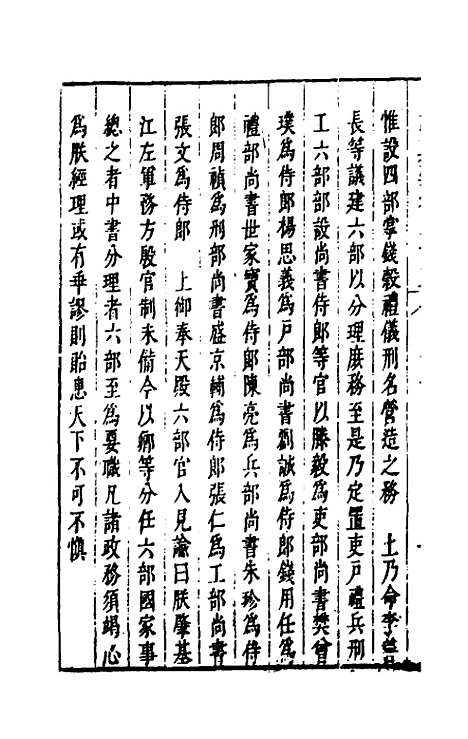 惟設四部掌錢穀禮儀刑名營造之務　上乃命李善
長等議建六部以分理庶務至是乃定置吏戶禮兵刑
工六部部設尚書侍郎等官以滕毅為吏部尚書樊魯
璞為侍郎楊思義為戶部尚書劉誠為侍郎錢用任為
禮部尚書世家寶為侍郎陳亮為兵部尚書朱珍為侍
郎周禎為刑部尚書盛京輔為侍郎張仁為工部尚書
張文為侍郎　上御奉天殿六部官入見諭曰朕肇基
江左軍務方殷官制未備今以卿等分任六部國家事
總之者中書分理者六部至為要職凡諸政務須竭心
為朕經理或有乖謬則貽患天下不可不慎